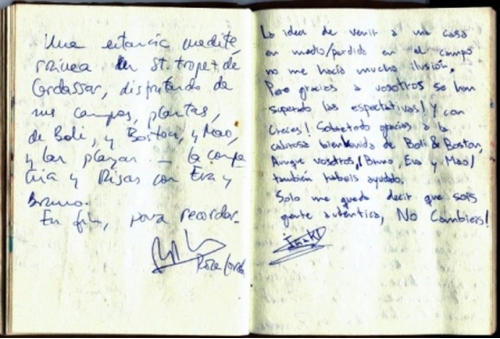 Una estancia medité
rránea en St. tropet de
Cardassar, disfrutando de
sus campos, plantas,
de Boli, y Boston, y Mao,
y las playas — la compa
ñía y Risas con Eva y
Bruno.
En fin, para recordar.
La idea de venir a una casa
en medio/perdido en el campo
no me hacía mucha ilusión.
Pero gracias a vosotros se han
superado las espectativas! y con
creces! Sobretodo gracias a la
calurosa bienvenida de Boli & Boston,
Aunque vosotros, (Bruno, Eva y Mao)
también habeis ayudado.
Solo me queda decir que sois
gente auténtica, No Cambieis!